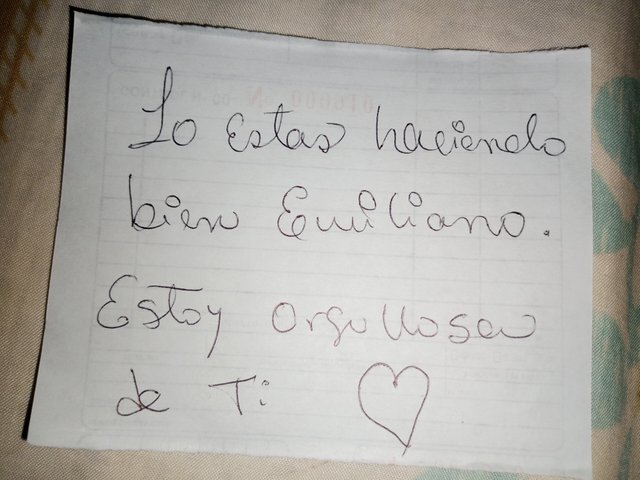 Lo Estas haciendo
bien Emiliano.
Estoy orgullosa
de Ti